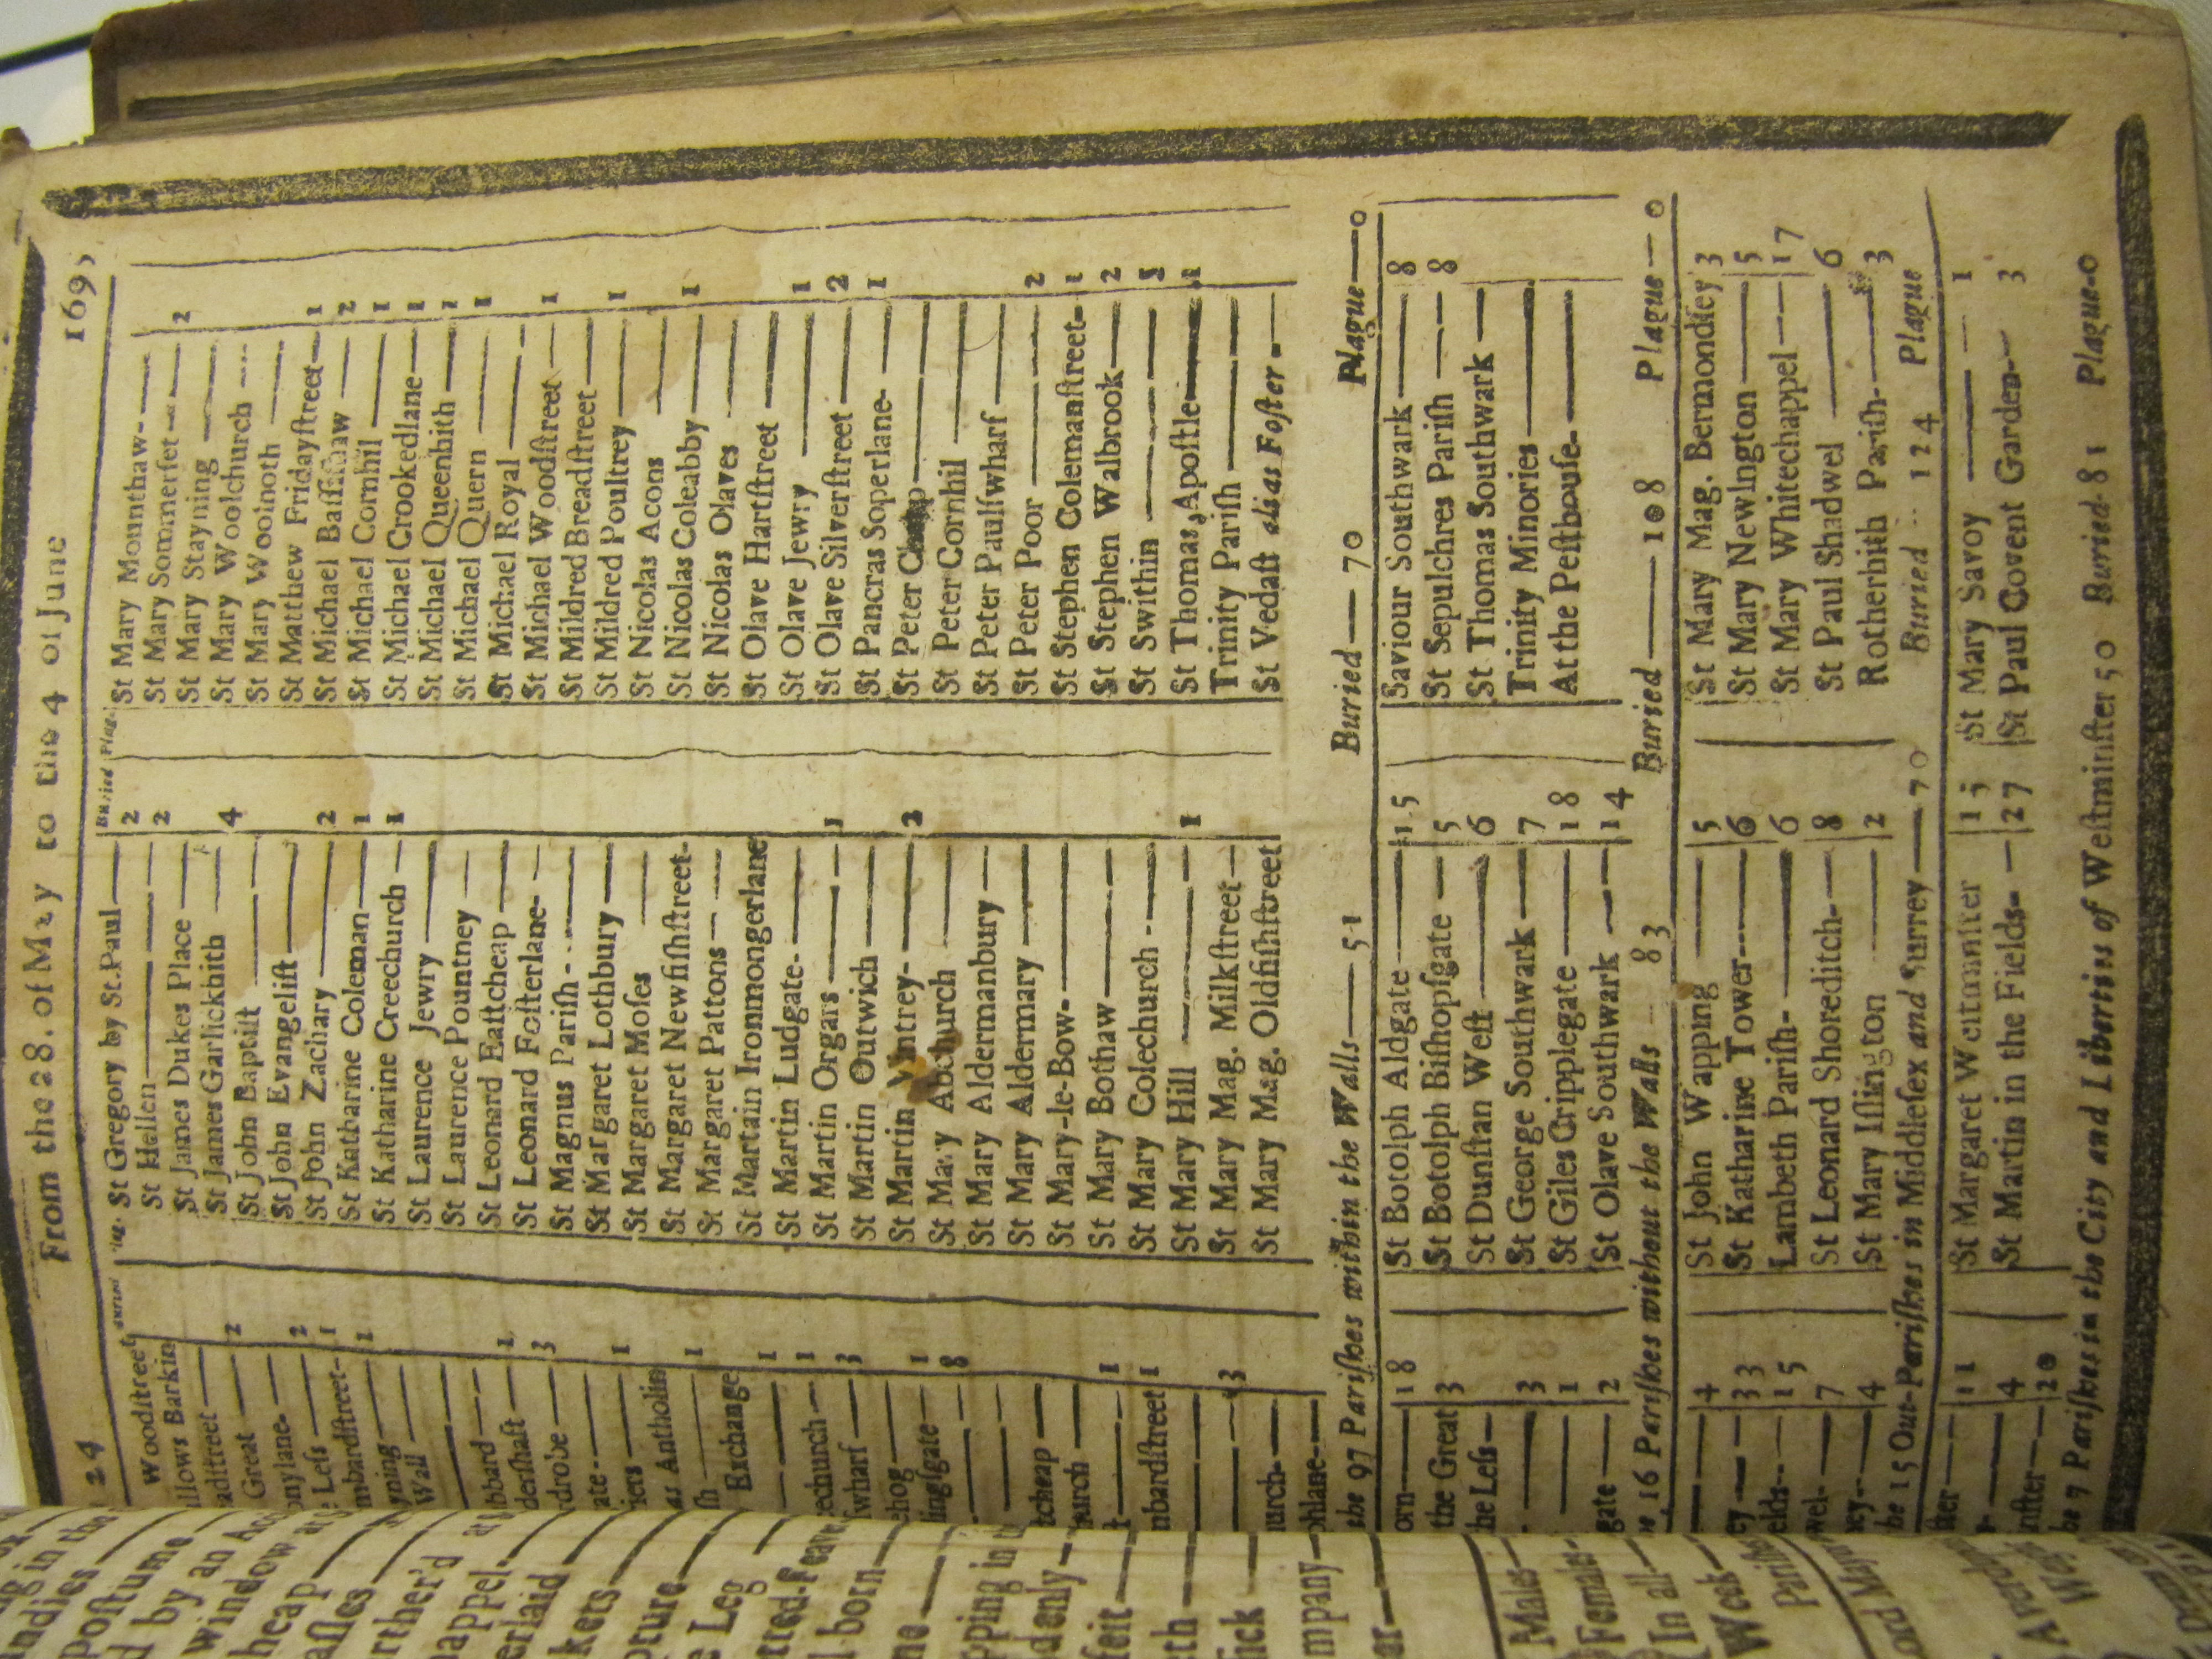 24 From the 28. of May to the 4 of June 1695
Buried Plag. Buried Plag.
Woodſtreet St Gregory by St.Paul 2 St Mary Mounthaw
llows Barkin St Hellen 2 St Mary Sommerſet 2
adſtreet 2 St James Dukes Place St Mary Stayning
Great St James Garlickhith 4 St Mary Woolchurch
onylane 2 St John Baptiſt St Mary Woolnoth
e Leſs 1 St John Evangeliſt St Matthew Fridayſtreet 1
mbardſtreet 1 St John Zachary 2 St Michael Baſſiſhaw 2
yning St Katharine Coleman 1 St Michael Cornhil 1
Wall St Katharine Creechurch 1 St Michael Crookedlane 1
St Laurence Jewry St Michael Queenhith 1
bbard St Laurence Pountney St Michael Quern 1
derſhaft 1 St Leonard Eaſtcheap St Michael Royal
drobe 3 St Leonard Foſterlane St Michael Woodſtreet 1
ate St Magnus Pariſh St Mildred Breadſtreet
iers 1 St Margaret Lothbury St Mildred Poultrey 1
as Antholin St Margaret Moſes St Nicolas Acons
ſh 1 St Margaret Newfiſhſtreet St Nicolas Coleabby 1
Exchange St Margaret Pattons St Nicolas Olaves
1 St Martain Ironmongerlane St Olave Hartſtreet
eechurch 1 St Martin Ludgate St Olave Jewry 1
ſwharf 3 St Martin Orgars 1 St Olave Silverſtreet 2
ehog St Martin Outwich St Pancras Soperlane 1
lingſgate 1 St Martin Vintrey 2 St Peter Cheap
8 St Mary Abchurch St Peter Cornhil
St Mary Aldermanbury St Peter Paulſwharf
tcheap St Mary Aldermary St Peter Poor 2
hurch St Mary-le-Bow St Stephen Colemanſtreet 1
1 St Mary Bothaw St Stephen Walbrook 2
nbardſtreet 1 St Mary Colechurch St Swithin
St Mary Hill 1 St Thomas Apoſtle
3 St Mary Mag. Milkſtreet Trinity Pariſh
urch St Mary Mag. Oldfiſhſtreet St Vedaſt alias Foſter
ohlane
the 97 Pariſhes within the Walls 51 Buried 70 Plague 0
orn 18 St Botolph Aldgate 15 Saviour Southwark 8
the Great 3 St Botolph Biſhopſgate 5 St Sepulchres Pariſh 8
he Leſs St Dunſtan Weſt 6 St Thomas Southwark
3 St George Southwark 7 Trinity Minories
1 St Giles Cripplegate 18 At the Peſthouſe
gate 2 St Olave Southwark 14
16 Pariſhes without the Walls 83 Buried 108 Plague 0
4 St John Wapping 5 St Mary Mag. Bermondſey 3
ey 33 St Katharine Tower 6 St Mary Newington 5
elds 15 Lambeth Pariſh 6 St Mary Whitechappel 17
wel 7 St Leonard Shoreditch 8 St Paul Shadwel 6
ney 4 St Mary Iſlington 2 Rotherhith Pariſh 3
he 15 Out-Pariſhes in Middleſex and Surrey 70 Buried 124 Plague
ter 11 St Margaret Weſtminſter 15 St Mary Savoy 1
4 St Martin in the Fields 27 St Paul Covent Garden 3
nſter 20
he 7 Pariſhes in the City and Liberties of Weſtminſter 50 Buried 81 Plague 0
ng in
andies in the
poſtume
d by an
window
heap
aſles
rther'd
happel
erlaid
kets
pture
e Leg
l born
pping in
denly
feit
th
ick
mpany
er
Males
Females
In all
Week
Pariſhes
ord Mayor